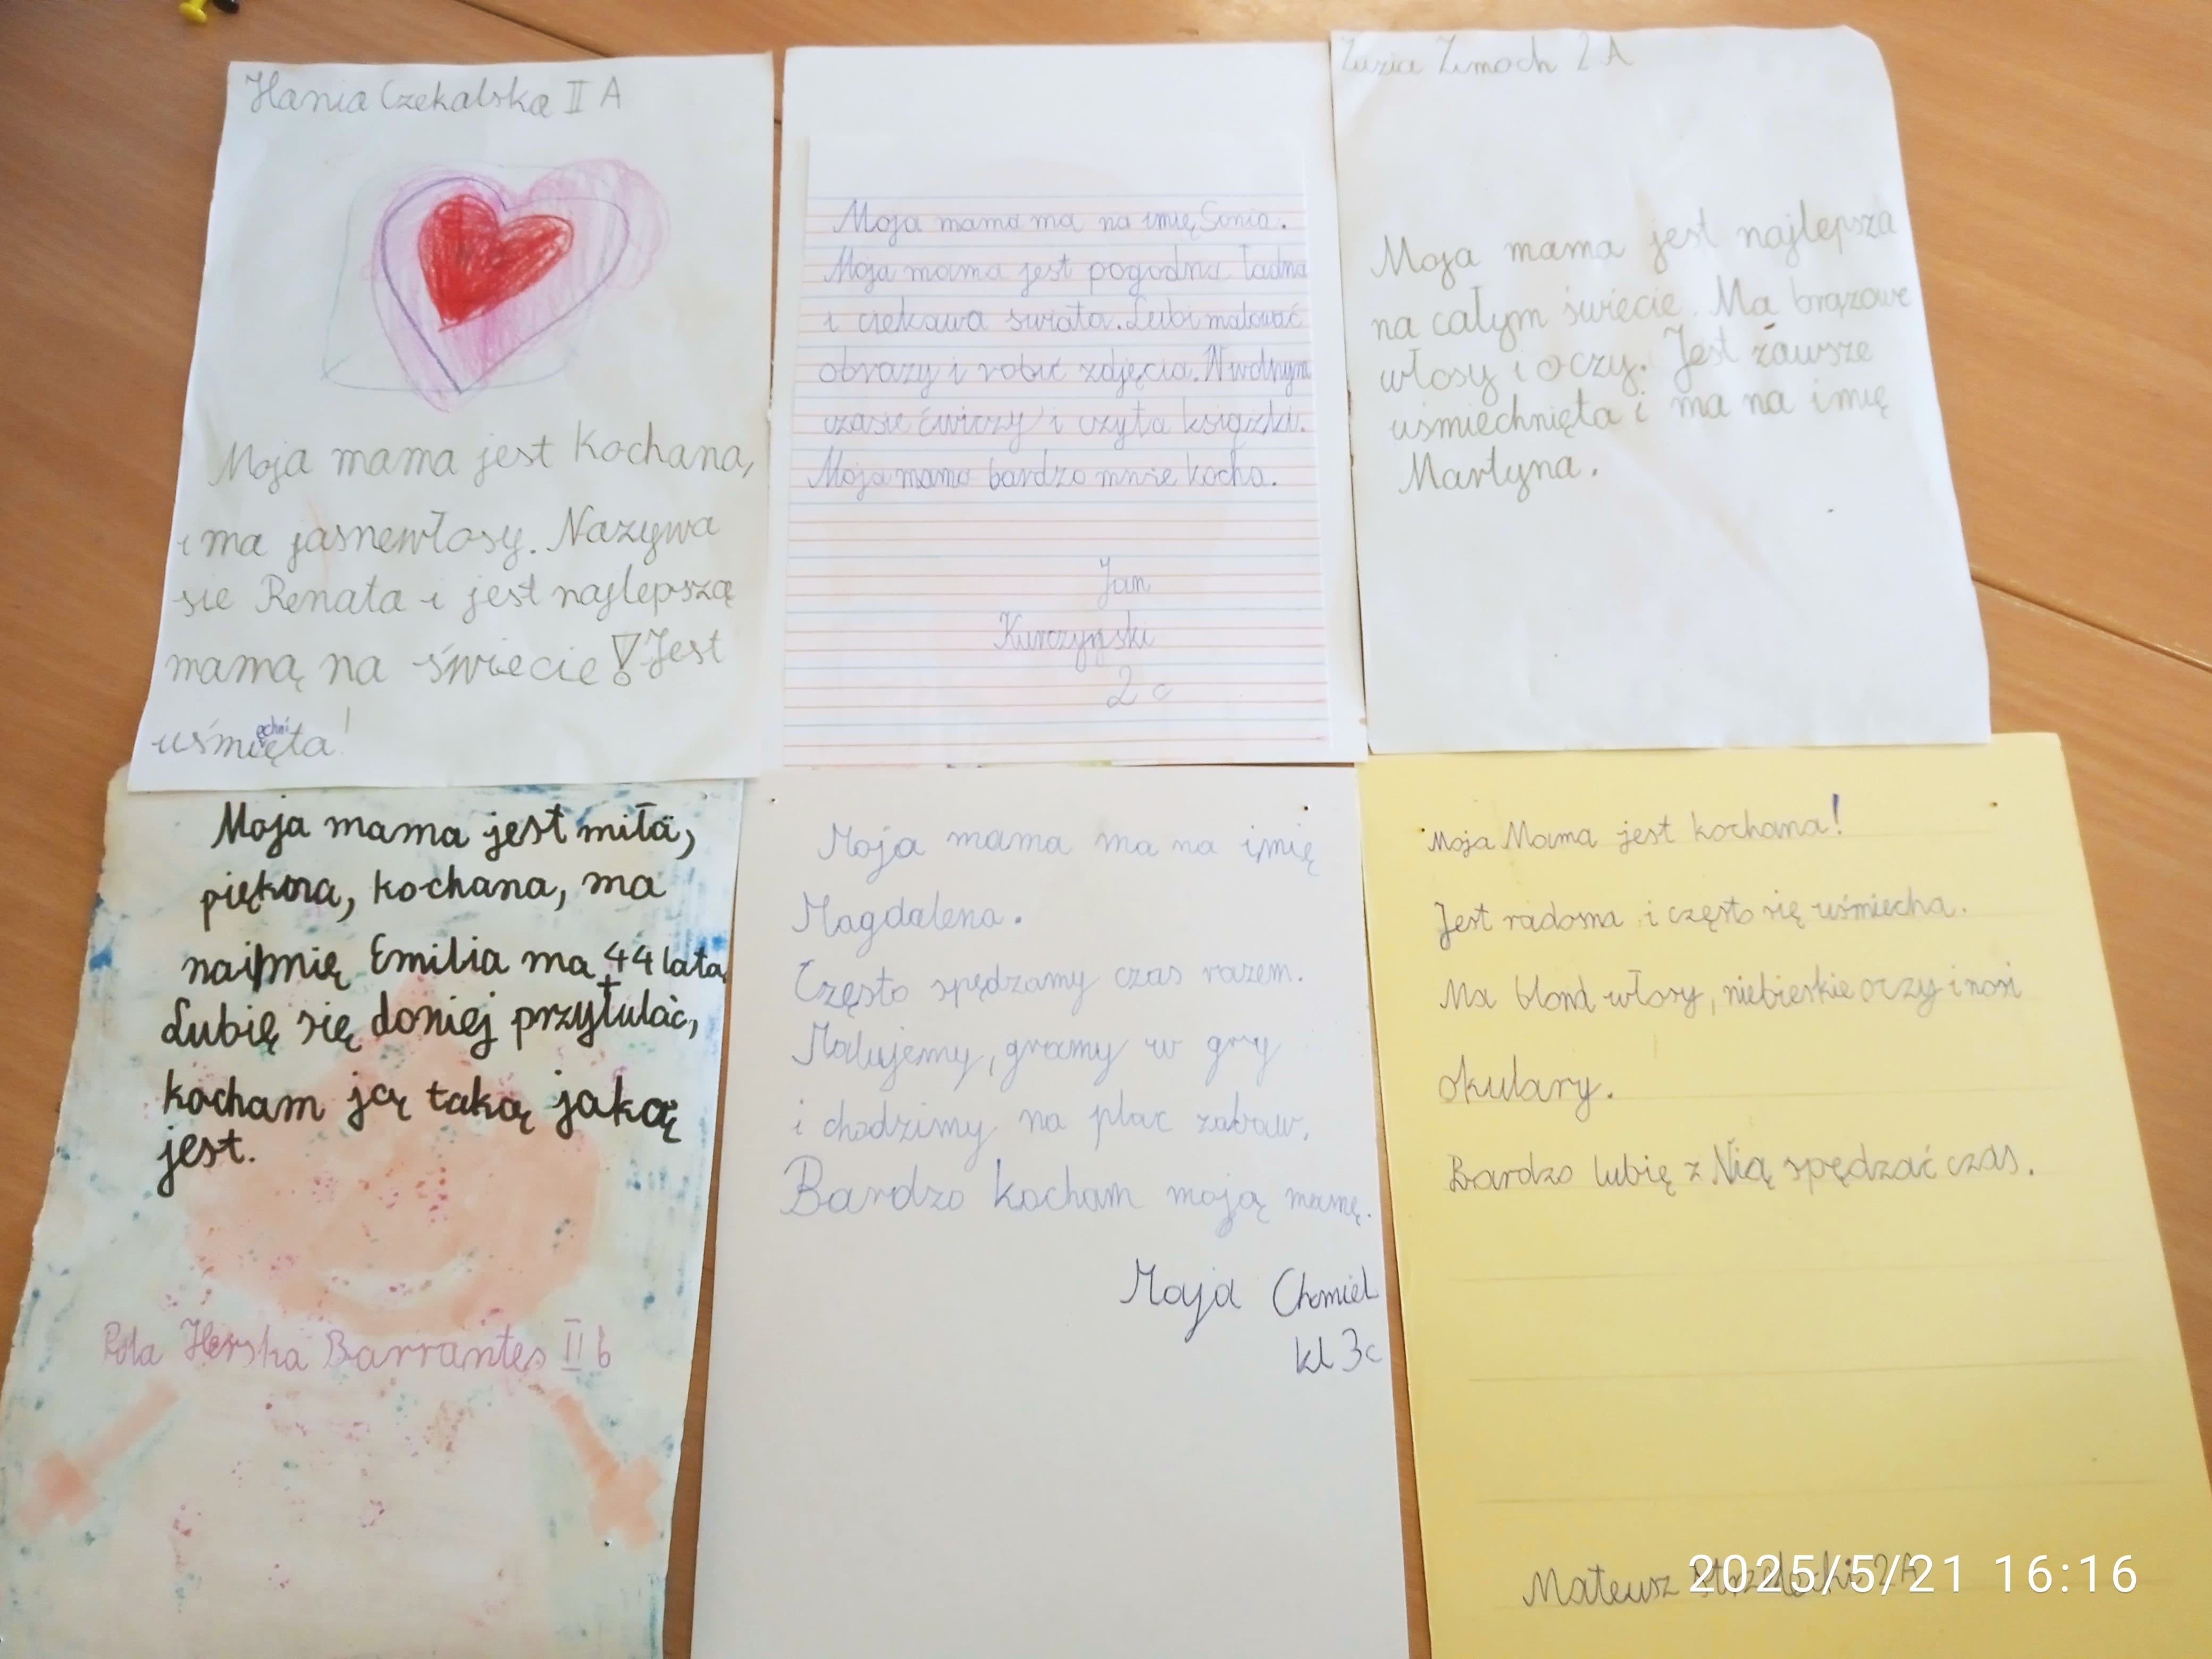 Hania Czekalska II A
Moja mama jest kochana,
i ma jasnewłosy. Nazywa
sie Renata i jest najlepszą
mamą na świecie! Jest
uśmięta!
echni
Moja mama ma na imię Sonia.
Moja mama jest pogodna ładna
i ciekawa świata. Lubi malować
obrazy i robić zdjęcia. W wolnym
czasie ćwiczy i czyta książki.
Moja mama bardzo mnie kocha.
Jan
2c
Zuzia Zimoch 2 A
Moja mama jest najlepsza
na całym świecie. Ma brązowe
włosy i oczy. Jest zawsze
uśmiechnięta i ma na imię
Martyna.
Moja mama jest miła,
piękna, kochana, ma
na imię Emilia ma 44 lata,
Lubię się doniej przytulać,
kocham ją taką jaką
jest.
Pola Herska Barrantes II b
Moja mama ma na imię
Magdalena.
Często spędzamy czas razem.
Malujemy, gramy w gry
i chodzimy na plac zabaw.
Bardzo kocham moją mamę.
Maja Chmiel
kl 3c
Moja Mama jest kochana!
Jest radosna i często się uśmiecha.
Ma blond włosy, niebieskie oczy i nosi
okulary.
Bardzo lubię z Nią spędzać czas.
Mateusz 2A
2025/5/21 16:16